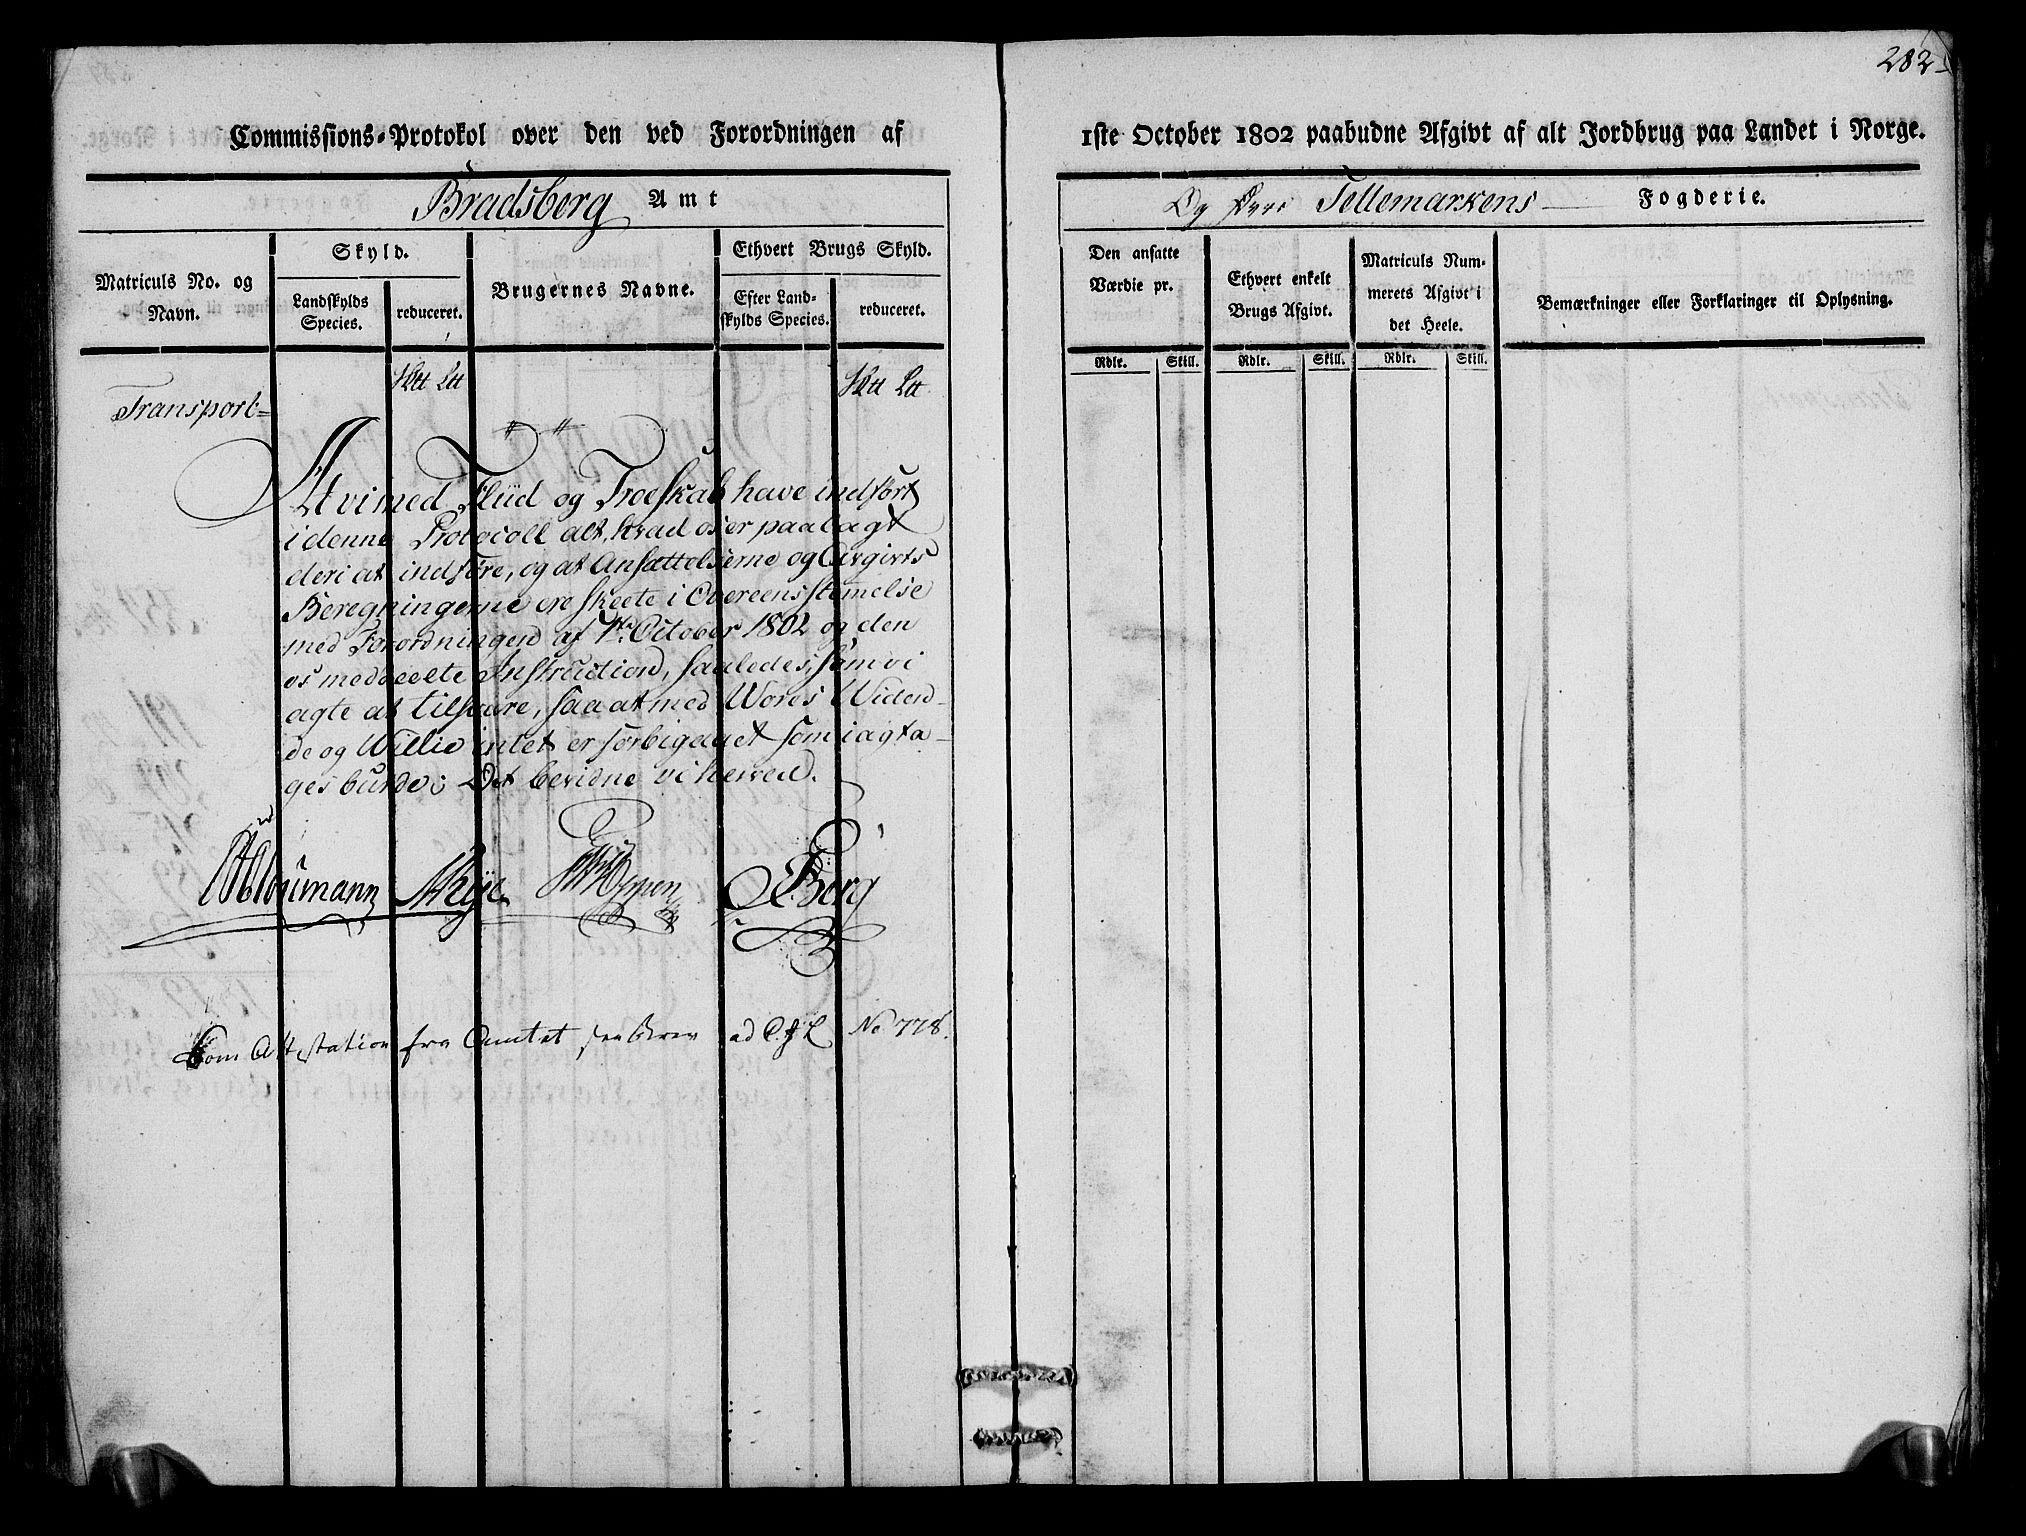 282
Commissions-Protokol over den ved Forordningen af
1ste October 1802 paabudne Afgivt af alt Jordbrug paa Landet i Norge.
Bradsberg Amt
Og Tellemarkens Fogderie.
Matriculs No. og
Navn.
Skyld.
Landskylds
Species.
reduceret.
Brugernes Navne.
Ethvert Brugs Skyld.
Efter Land-
skylds Species.
reduceret.
Den ansatte
Værdie pr.
Ethvert enkelt
Brugs Afgivt.
Matriculs Num-
merets Afgivt i
det Heele.
Bemærkninger eller Forklaringer til Oplysning.
Rdlr. Skill. Rdlr. Skill. Rdlr. Skill.
Transport
At vi med Fliid og Troeskab have indført
i denne Protocoll alt, hvad os er paalagt
deri at indføre, og at Ansættelserne og Avgivts
Beregningerne ere skeete i Overeensstemelse
med Forordningen af 1te October 1802 og den
os meddeelte Instruction, saaledes, som vi
agte at tilsvare, saa at med Wores Widen-
de og Willie intet er forbigaaet som iagta-
ges burde; Det bevidne vi herved.
Berg
Som Attestation fra Amtet see Brev ad No 778.